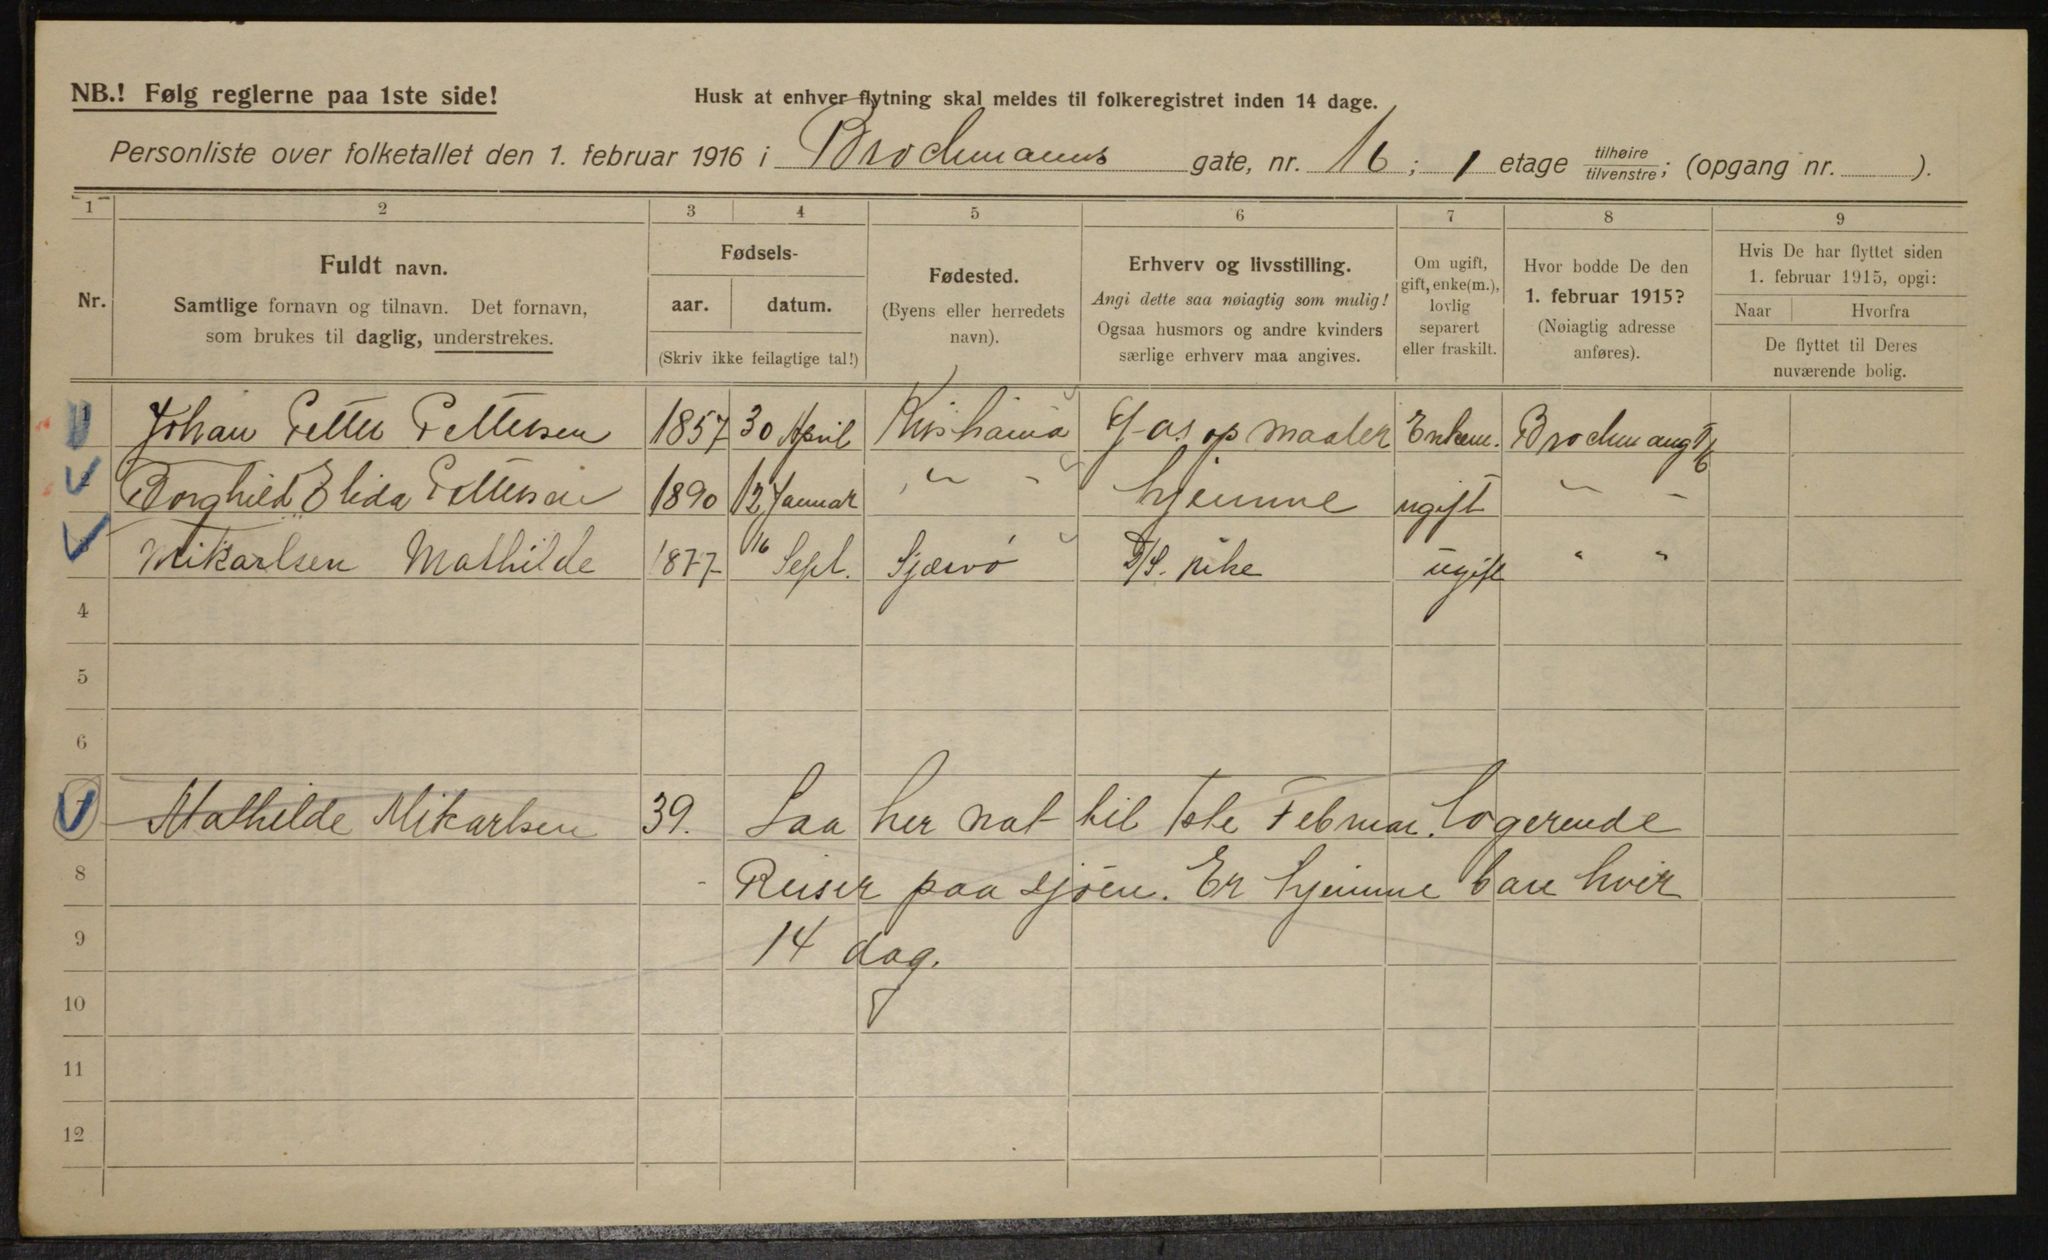 NB.! Følg reglerne paa 1ste side!
Husk at enhver flytning skal meldes til folkeregistret inden 14 dage.
Personliste over folketallet den 1. februar 1916 i Brochmanns gate, nr. 16; 1 etage tilhøire/tilvenstre; (opgang nr. ).
1 2 3 4 5 6 7 8 9
Nr.
Fuldt navn.
Samtlige fornavn og tilnavn. Det fornavn,
som brukes til daglig, understrekes.
Fødsels-
aar. datum.
(Skriv ikke feilagtige tal!)
Fødested.
(Byens eller herredets
navn).
Erhverv og livsstilling.
Angi dette saa nøiagtig som mulig!
Ogsaa husmors og andre kvinders
særlige erhverv maa angives.
Om ugift,
gift, enke(m.),
lovlig
separert
eller fraskilt.
Hvor bodde De den
1. februar 1915?
(Nøiagtig adresse
anføres).
Hvis De har flyttet siden
1. februar 1915, opgi:
Naar Hvorfra
De flyttet til Deres
nuværende bolig.
1 Johan Petter Pettersen 1857 30 April Kristiania Gasopmaaler Enkem. Brochmansg 16
2 Borghild Elida Pettersen 1890 12 Januar " - hjemme ugift " -
3 Mikarlsen Mathilde 1877 16 Sept. Sjærvø D/S. ugift " "
4
5
6
7 Mathilde Mikarlsen 39. Laa her nat til 1ste Februar. Logerende
8 Reiser paa sjøen. Er hjemme bare hver
9 14 dag.
10
11
12